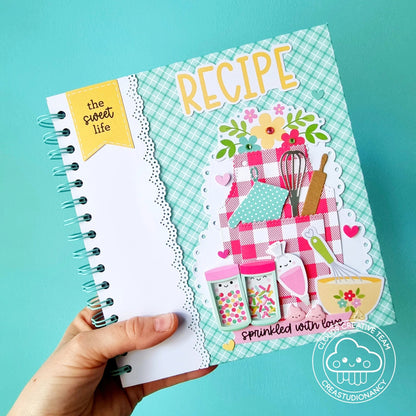 the
sweet
life
RECIPE
sprinkled with love
CLOUD CREATIVE TEAM
CREASTUDIONANCY